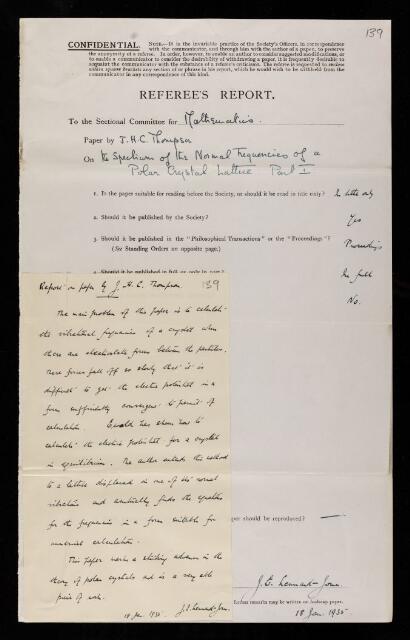 139
CONFIDENTIAL. NOTE.—It is the invariable practice of the Society's Officers, in correspondence
with the communicator, and through him with the author of a paper, to preserve
the anonymity of a referee. In order, however, to enable an author to consider suggested modifications, or
to enable a communicator to consider the desirability of withdrawing a paper, it is frequently desirable to
acquaint the communicator with the substance of a referee's criticisms. The referee is requested to
within square brackets any section of or phrase in his report, which he would wish to be withheld from the
communicator in any correspondence of this kind.
REFEREE'S REPORT.
To the Sectional Committee for Mathematics.
Paper by J. H. C. Thompson
On the Spectrum of the Normal Frequencies of a
Polar Crystal Lattice Part I
1. Is the paper suitable for reading before the Society, or should it be read in title only? In title only
2. Should it be published by the Society? Yes
3. Should it be published in the "Philosophical Transactions" or the "Proceedings"? Proceedings
(See Standing Orders on opposite page.)
4. Should it be published in full or only in part? In full
No.
Report on paper by J. H. C. Thompson 139
The main problem of this paper is to calculate
the vibrational frequencies of a crystal when
there are electrostatic forces between the particles.
These forces fall off so slowly that it is
difficult to get the electric potential in a
form sufficiently convergent to permit of
calculation. Ewald has shown how to
calculate the electric potential for a crystal
in equilibrium. The author extends this method
to a lattice displaced in one of its normal
vibrations and eventually finds the equation
for the frequencies in a form suitable for
numerical calculation.
This paper marks a striking advance in the
theory of polar crystals and is a very able
piece of work.
18 Jan. 1935 J. E. Lennard-Jones.
per should be reproduced? —
J. E. Lennard-Jones.
Further remarks may be written on
18 Jan. 1935